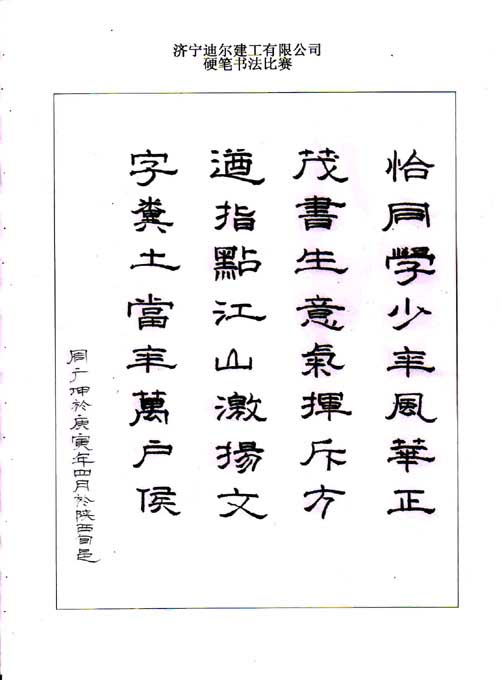 济宁迪尔建工有限公司
硬笔书法比赛
恰同學少年風華正
茂書生意氣揮斥方
遒指點江山激揚文
字糞土當年萬户侯
周坤於庚寅年四月於陕西旬邑